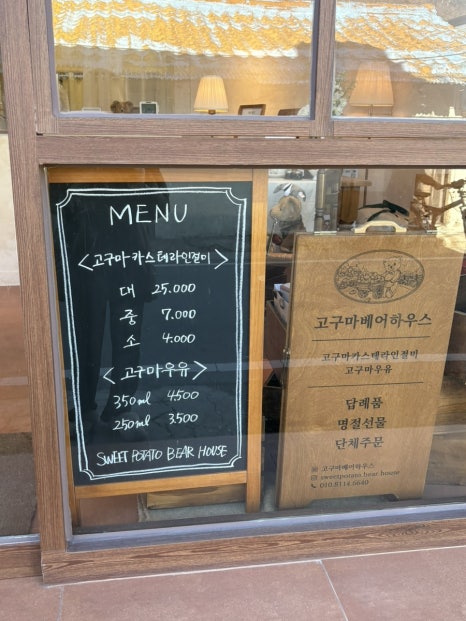 MENU
<고구마카스테라인절미>
대 25.000
중 7.000
소 4.000
<고구마우유>
350ml 4.500
250ml 3.500
SWEET POTATO BEAR HOUSE
고구마베어하우스
고구마카스테라인절미
고구마우유
답례품
명절선물
단체주문
고구마베어하우스
sweetpotato.bear.house
010.8114.6640